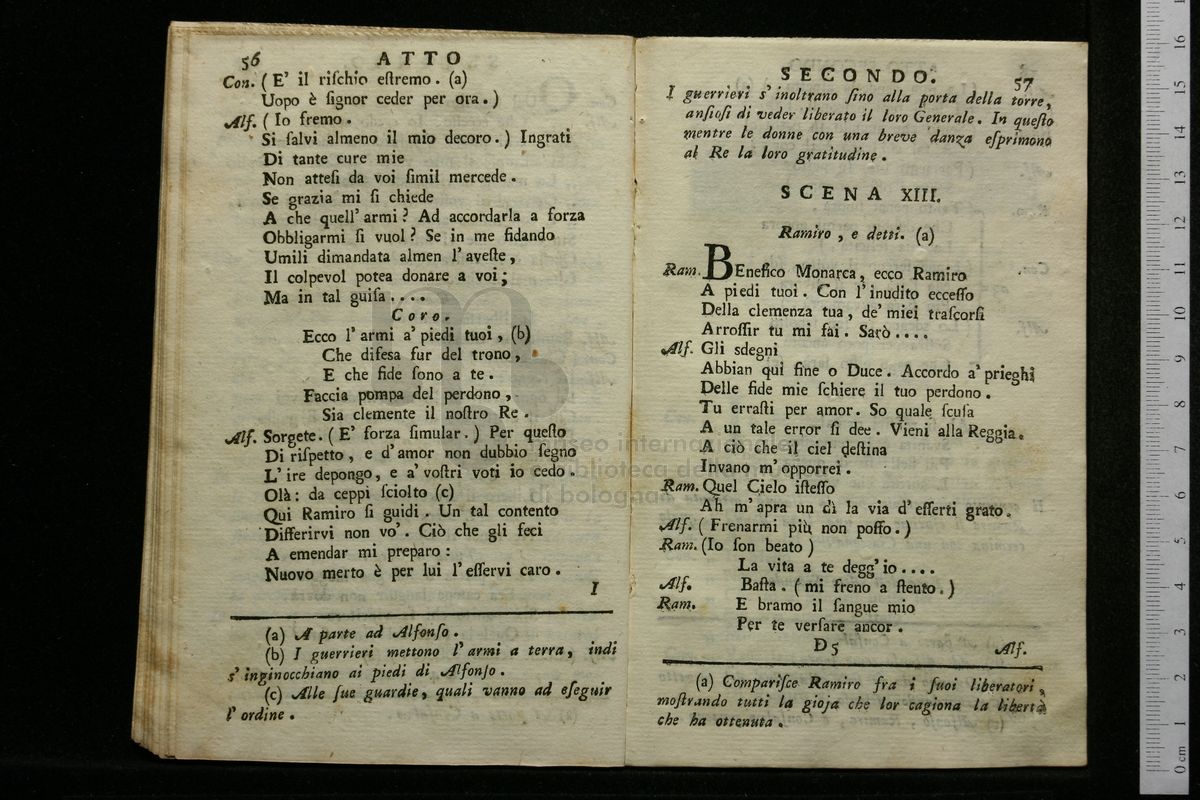 56
ATTO
Con. ( E' il riſchio eſtremo. (a)
Uopo è ſignor ceder per ora. )
Alf. ( Io fremo.
Si ſalvi almeno il mio decoro. ) Ingrati
Di tante cure mie
Non atteſi da voi ſimil mercede.
Se grazia mi ſi chiede
A che quell' armi? Ad accordarla a forza
Obbligarmi ſi vuol? Se in me fidando
Umili dimandata almen l' aveſte,
Il colpevol potea donare a voi;
Ma in tal guiſa ....
Coro.
Ecco l' armi a' piedi tuoi, (b)
Che difeſa fur del trono,
E che fide ſono a te.
Faccia pompa del perdono,
Sia clemente il noſtro Re.
Alf. Sorgete. ( E' forza ſimular. ) Per queſto
Di riſpetto, e d' amor non dubbio ſegno
L' ire depongo, e a' voſtri voti io cedo.
Olà: da ceppi ſciolto (c)
Qui Ramiro ſi guidi. Un tal contento
Differirvi non vo'. Ciò che gli feci
A emendar mi preparo:
Nuovo merto è per lui l' eſſervi caro.
I
(a) A parte ad Alfonſo.
(b) I guerrieri mettono l' armi a terra, indi
s' inginocchiano ai piedi di Alfonſo.
(c) Alle ſue guardie, quali vanno ad eſeguir
l' ordine.
SECONDO.
57
I guerrieri s' inoltrano ſino alla porta della torre,
anſioſi di veder liberato il loro Generale. In queſto
mentre le donne con una breve danza eſprimono
al Re la loro gratitudine.
SCENA XIII.
Ramiro, e detti. (a)
Ram. BEnefico Monarca, ecco Ramiro
A piedi tuoi. Con l' inudito ecceſſo
Della clemenza tua, de' miei traſcorſi
Arroſſir tu mi fai. Sarò ....
Alf. Gli sdegni
Abbian qui fine o Duce. Accordo a' prieghi
Delle fide mie ſchiere il tuo perdono.
Tu erraſti per amor. So quale ſcuſa
A un tale error ſi dee. Vieni alla Reggia.
A ciò che il ciel deſtina
Invano m' opporrei.
Ram. Quel Cielo iſteſſo
Ah m' apra un dì la via d' eſſerti grato.
Alf. ( Frenarmi più non poſſo. )
Ram. (Io ſon beato )
La vita a te degg' io ....
Alf. Baſta. ( mi freno a ſtento. )
Ram. E bramo il ſangue mio
Per te verſare ancor.
D5
Alf.
(a) Compariſce Ramiro fra i ſuoi liberatori,
moſtrando tutti la gioja che lor cagiona la libertà
che ha ottenuta.
museo internazionale e
biblioteca della
di bologna
0 cm 1 2 3 4 5 6 7 8 9 10 11 12 13 14 15 16